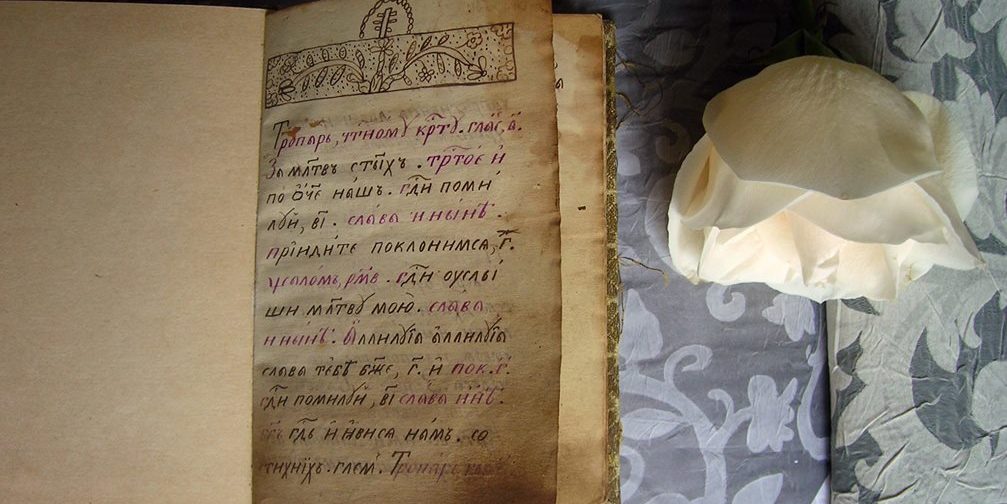 Тропарь, чтⷭ҇номꙋ крⷭ҇тꙋ. гла́съ, а҃.
За мл҃твъ ст҃ы́хъ. трⷭ҇то́е и҆
по ѻ҆́ч҃е на́шъ. гдⷭ҇и поми́
лꙋй, в҃і. сла́ва и҆ ны́нѣ.
прїиди́те поклони́мся, г҃.
ѱало́мъ, рм҃в. гдⷭ҇и оуслы́
ши мл҃твꙋ мою̀. сла́ва
и ны́нѣ. а҆ллилꙋ́їа а҆ллилꙋ́їа
сла́ва тебѣ̀ бж҃е, г҃. и҆ пок. г҃.
гдⷭ҇и поми́лꙋй, в҃і сла́ва и҆ н҃нѣ.
гдⷭ҇ь и҆ ꙗ҆ви́ся на́мъ. со
Тропарь